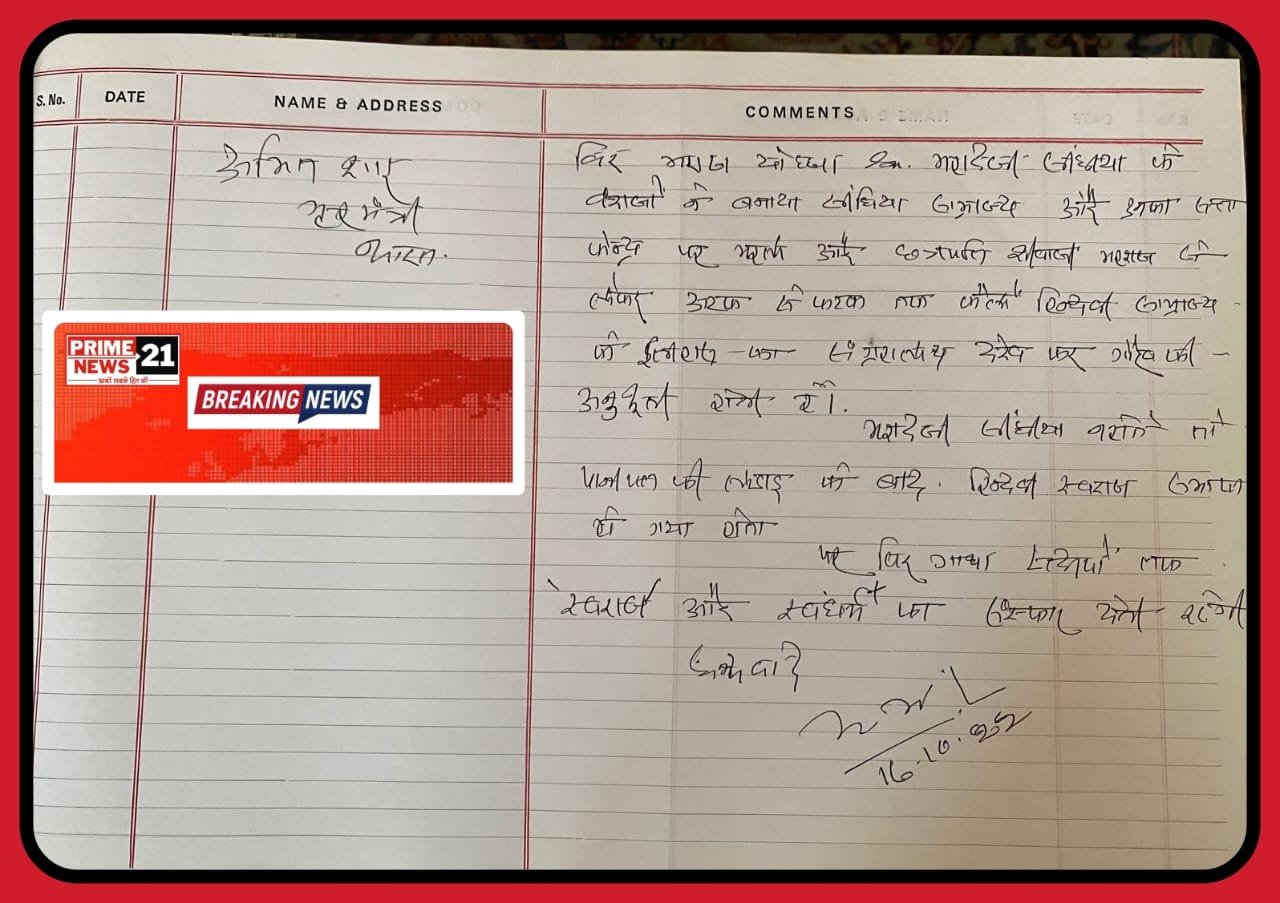 S. No. DATE NAME & ADDRESS COMMENTS
अमित शाह
गृह मंत्री
भारत.
PRIME
NEWS 21
BREAKING NEWS
विर मराठा योध्धा महादजी सिंधिया के
वंशजो ने बनाया सिंधिया साम्राज्य और
केन्द्र पर मराठा और छत्रपति शीवाजी महाराज से
लेकर अटक से कटक तक फैले हिन्दवी साम्राज्य
के ईतिहास का संग्रहालय देख कर गौरव की
अनुभूती होती है.
महादजी सिंधिया न होते तो
पानीपत की लडाई के बाद हिन्दवी स्वराज समाप्त
हो गया होता
पर विर गाथा सदियों तक
स्वराज और स्वधर्म का संस्कार देती रहेगी
धन्यवाद
16.10.22